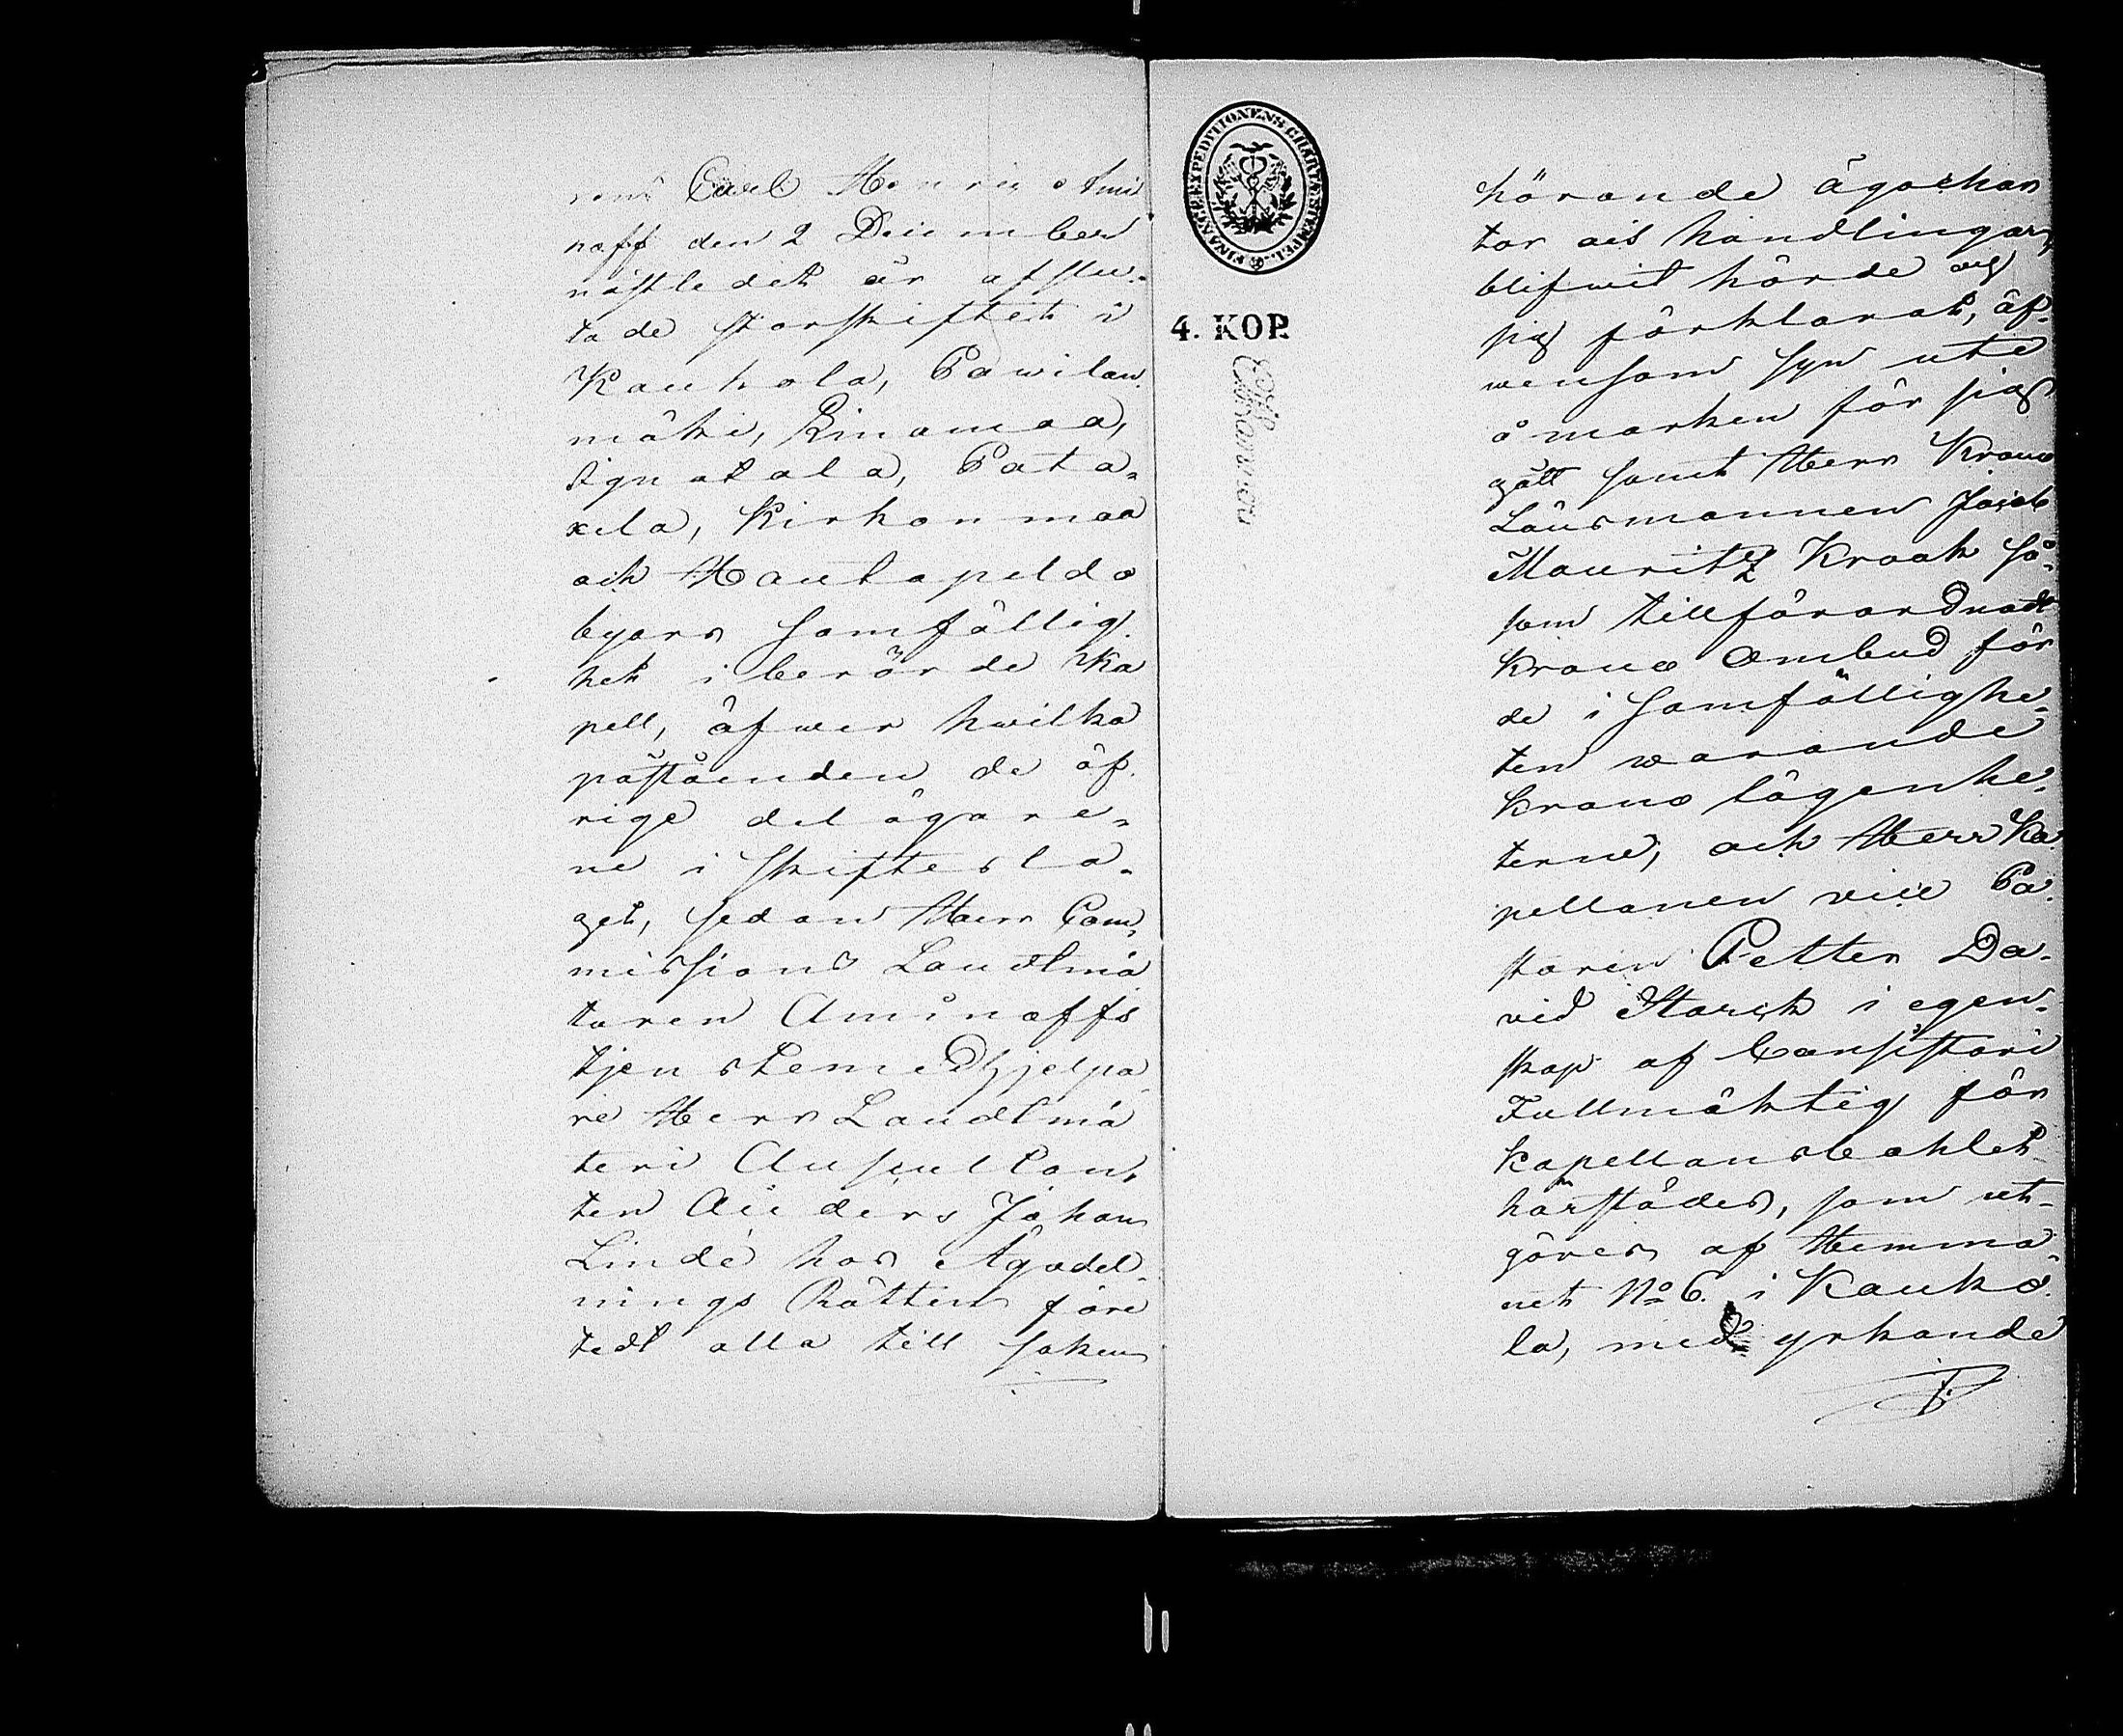 rens Carl Henric Ami
noff den 2 December
nästledit år afslu-
tade storskiftet i
Kauhola, Pawilan
mäki, Rinamaa,
Ignatala, Pata-
xela, Kirkonmaa
och Hautapeldo
byars samfällig
het i berörde Ka
pell, öfwer hwilka
påståenden de öf-
rige delägare-
ne i skiftesla-
get, sedan Herr Com-
missions Landtmä
taren Aminoffs
tjenstemedhjelpa
re Herr Landtmä
teri Auscultan-
ten Anders Johan
Lindé hos Ägodel-
nings Rätten före
tedt alla till saken
FINANCE EXPEDITIONENS CHARTÆ STEMPEL
4. KOP.
hörande ägochar
tor och handlingar,
blifwit hörde och
sig förklarat, äf-
wensom syn ute
å marken för sig
gått samt Herr Krono
Länsmannen Jacob
Mauritz Kraak så-
som tillförordnadt
krono ombud för
de i samfällighe-
ten warande
krono lägenhe-
terne, och Herr Ka
pellanen vice Pa-
storen Petter Da-
vid Starck i egen-
skap af Consistorii
Fullmäktig för
kapellansbohlet
härstädes, som ut-
göres af Hemma-
net No 6. i Kauho-
la, med yrkande